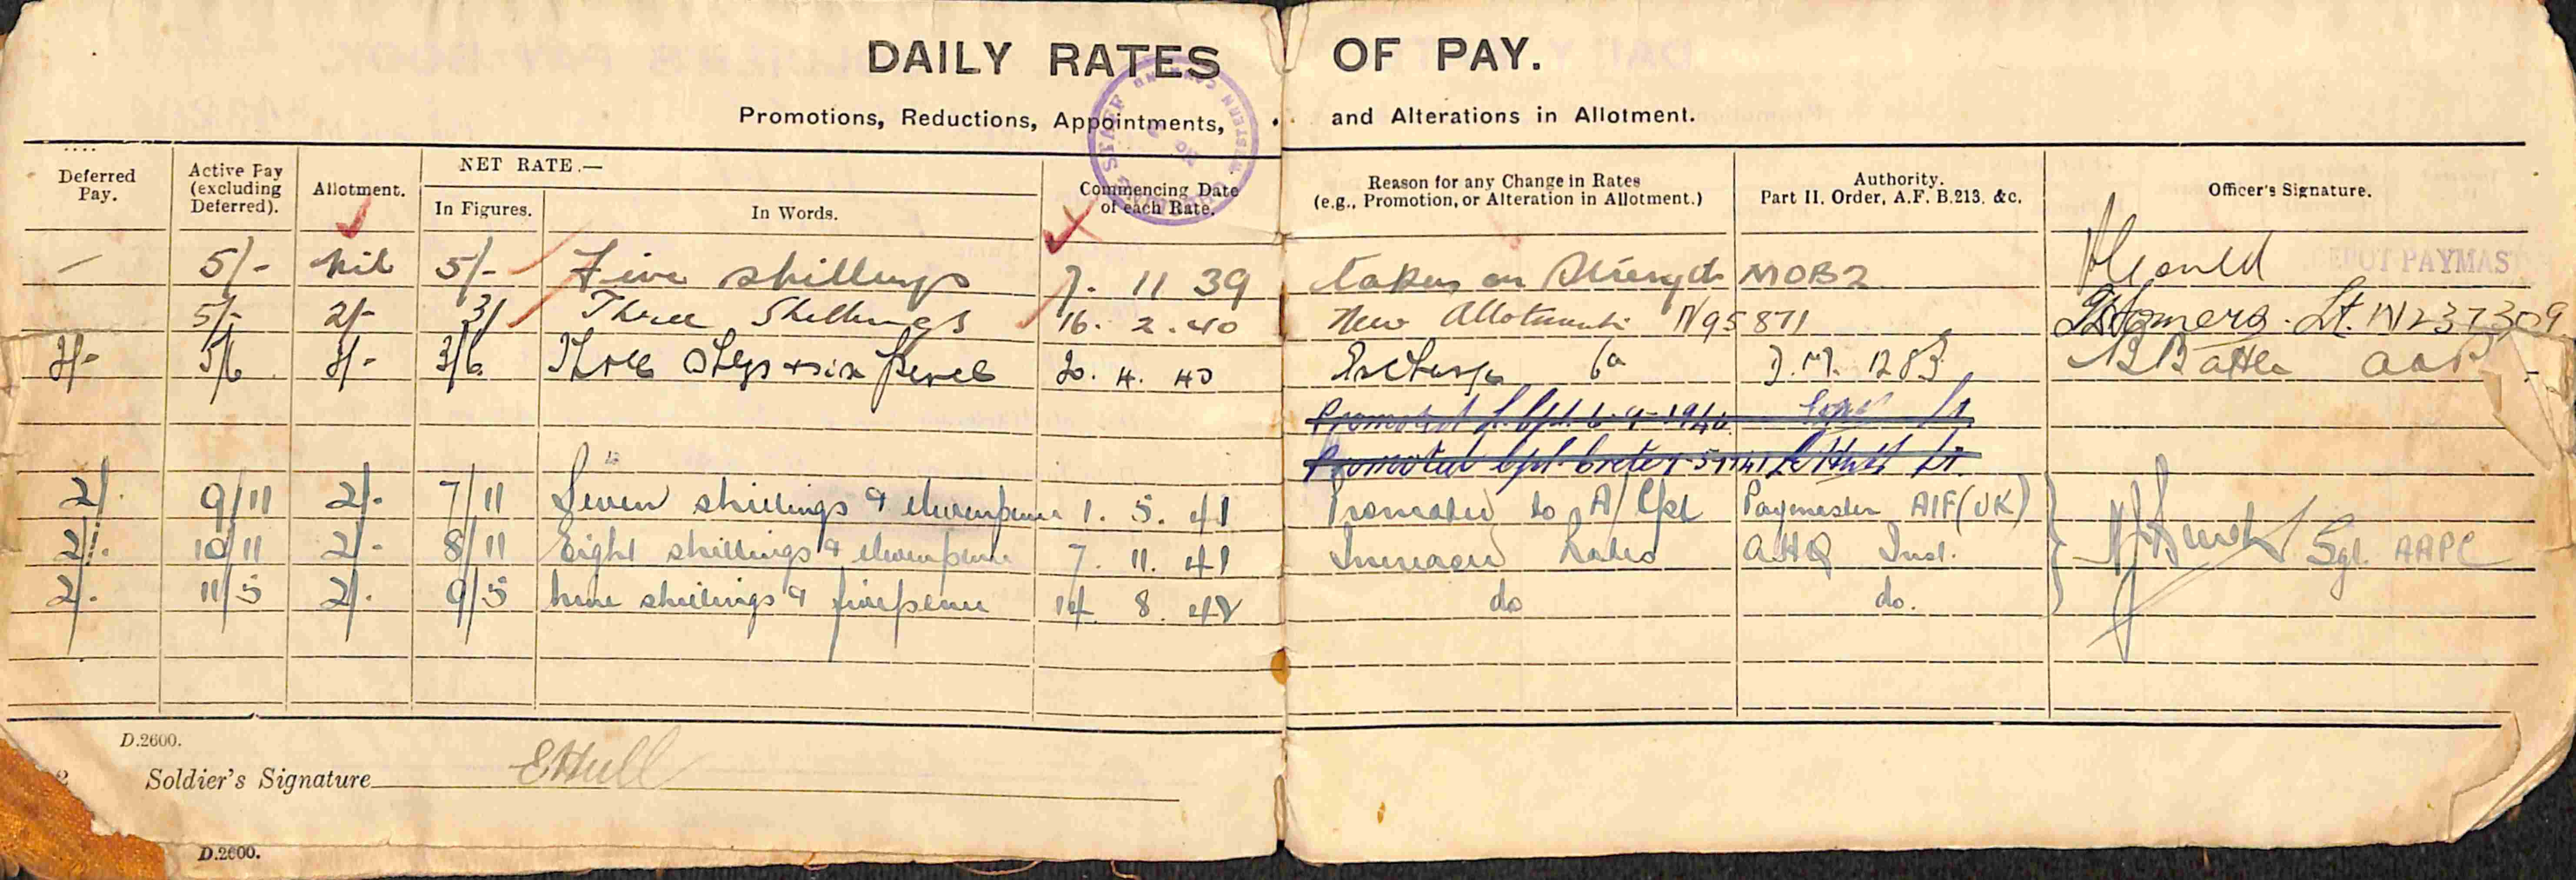 DAILY RATES OF PAY.
Promotions, Reductions, Appointments, and Alterations in Allotment.
Deferred Pay.
Active Pay (excluding Deferred).
Allotment.
NET RATE.—
In Figures.
In Words.
Commencing Date of each Rate.
Reason for any Change in Rates (e.g., Promotion, or Alteration in Allotment.)
Authority. Part II. Order, A.F. B.213, &c.
Officer's Signature.
DEPOT PAYMAS
— 5/- Nil 5/- Five shillings 7. 11 39 Taken on Strength MOB2
5/- 2/- 3/ Three Shillings 16. 2. 40 New Allotment N95871 Lt. N237309
2/- 5/6 2/- 3/6 Three Slgs + six pence 20. 4. 40 D.M. 1283
Promoted L. Cpl. 6-9-1940 Lt
Promoted Cpl. Lt.
2/. 9/11 2/- 7/11 Seven shillings & elevenpence 1. 5. 41 Promoted to A/Cpl Paymaster AIF (UK)
2/. 10/11 2/- 8/11 Eight shillings & elevenpence 7. 11. 41 Increased Rates AHQ Inst. Sgt. AAPC
2/. 11/5 2/. 9/5 nine shillings & fivepence 14. 8. 42 do do.
D.2600.
2 Soldier's Signature EHull
D.2600.